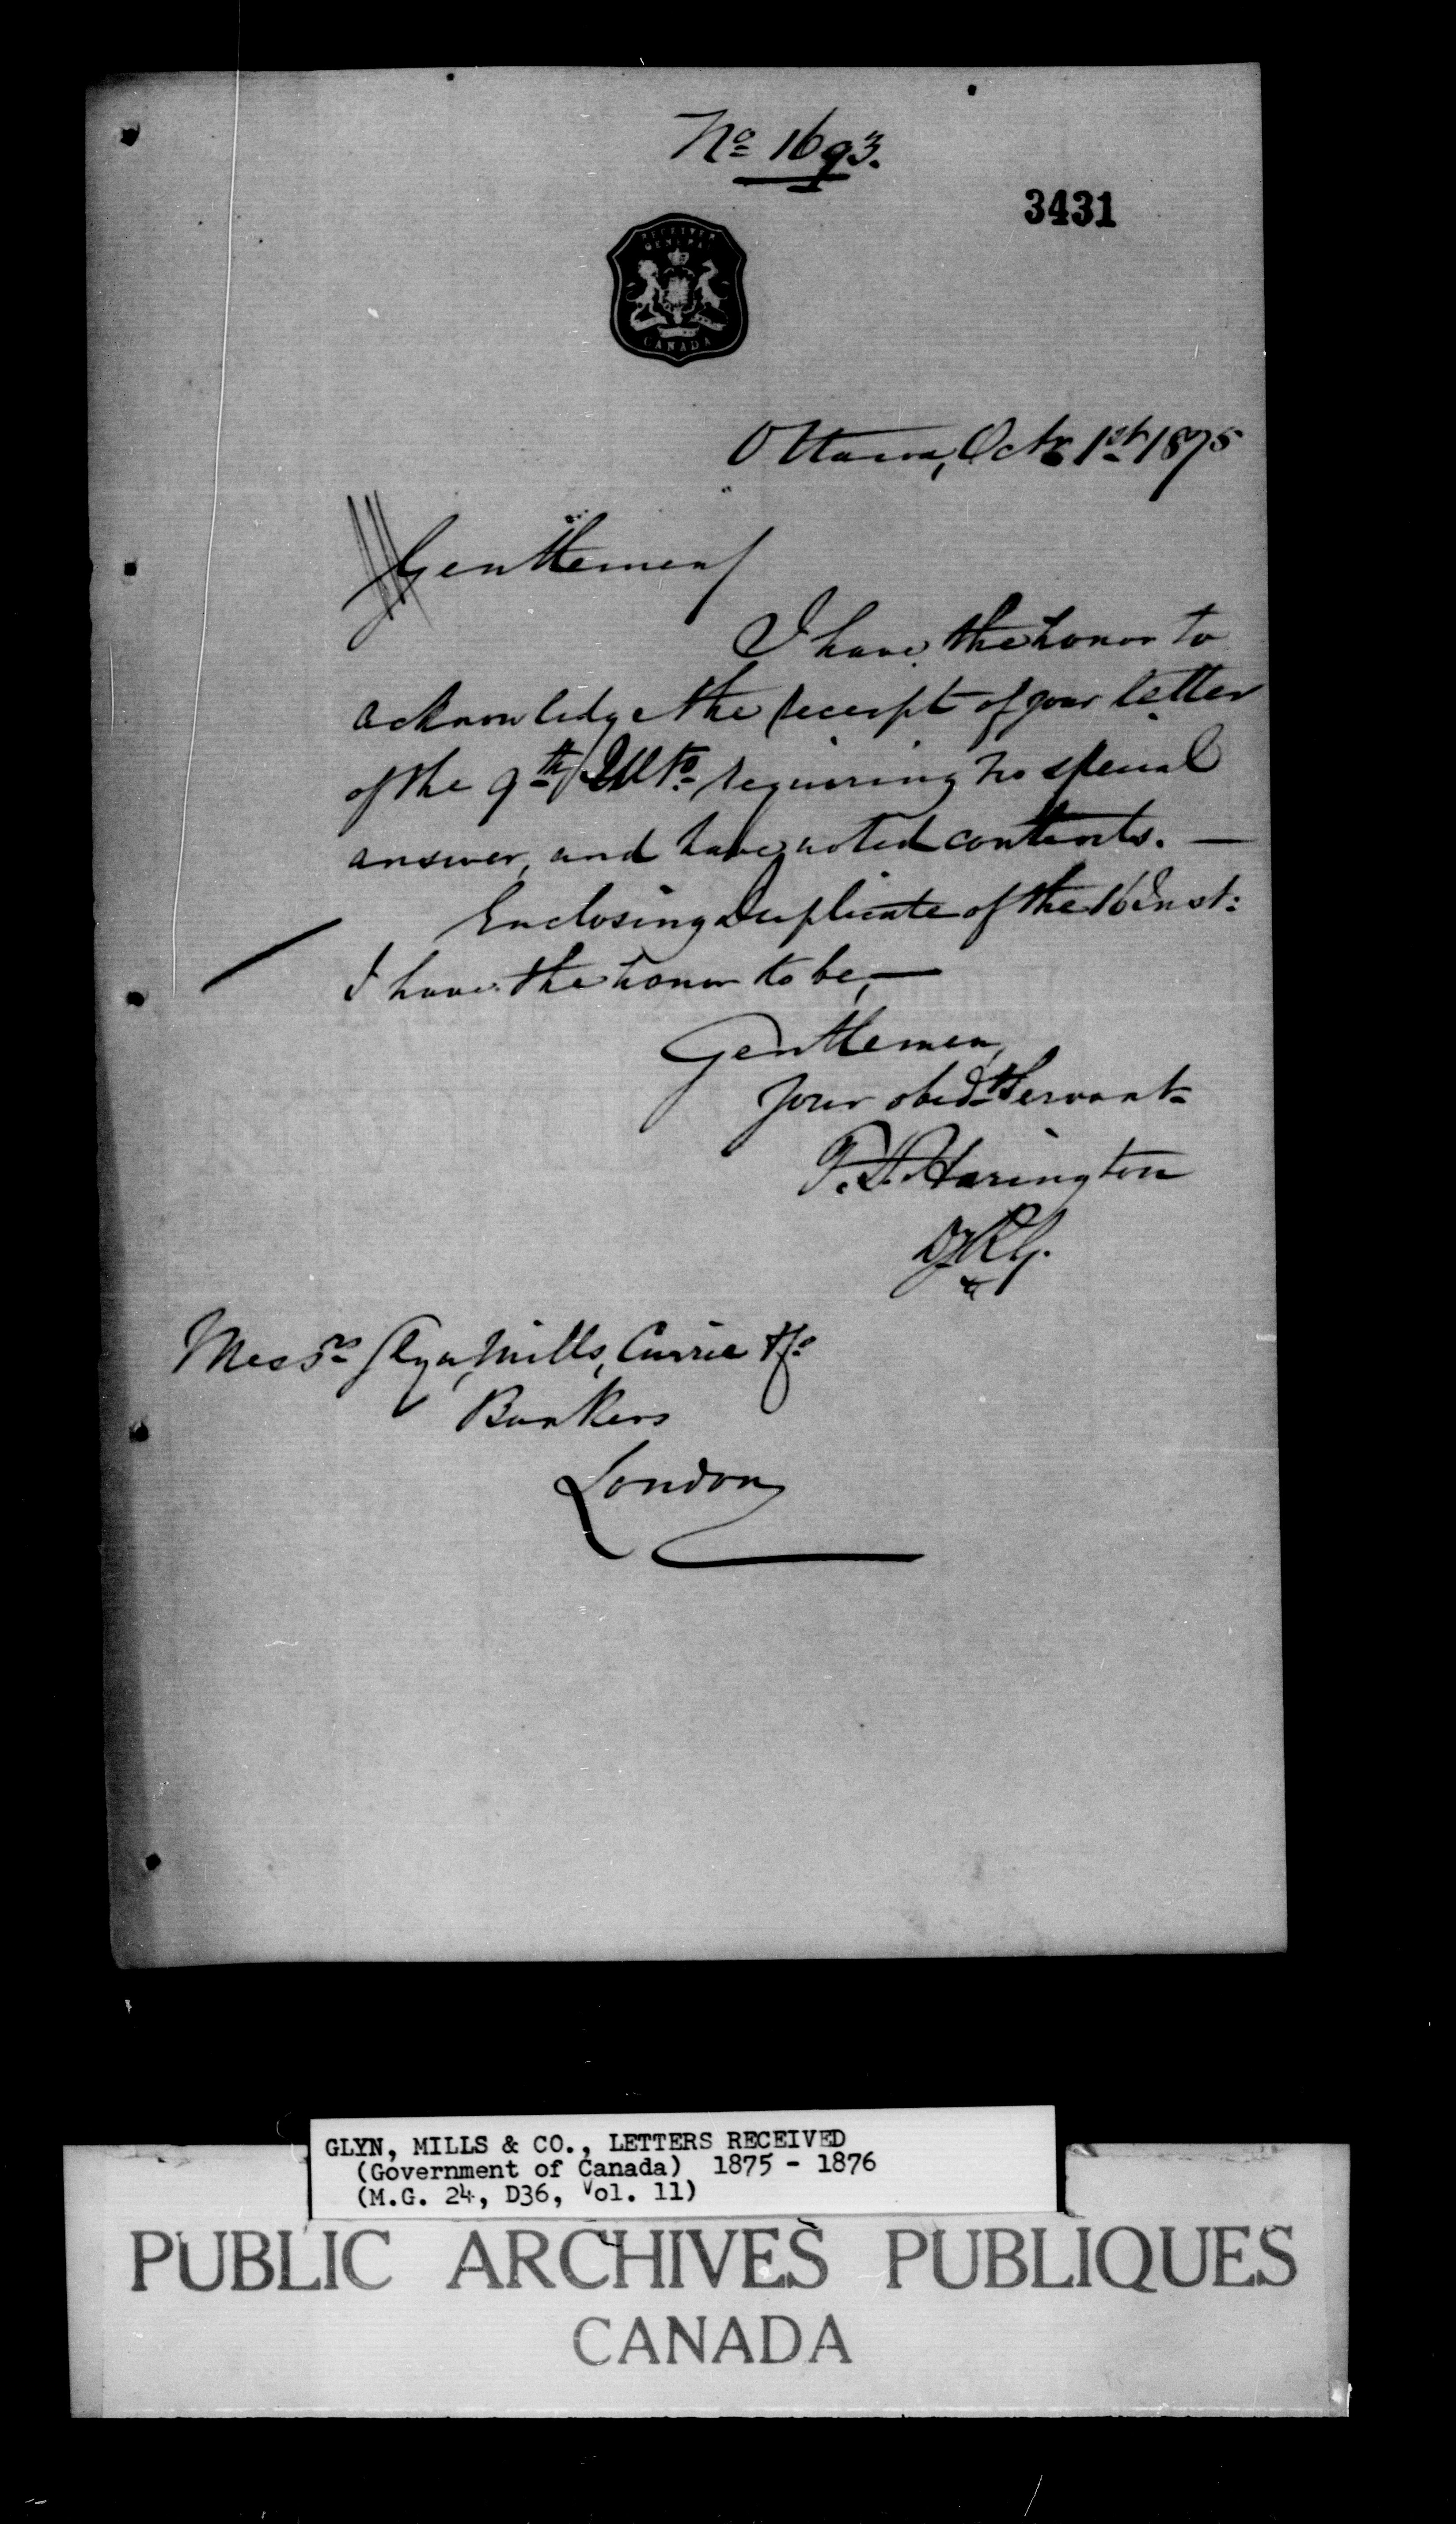 No 1693.
3431
RECEIVER
GENERAL
CANADA
Ottawa, Octr 1st 1875
Gentlemen/
I have the honor to
acknowledge the receipt of your letter
of the 9th Ulto requiring no special
answer, and have noted contents. —
Enclosing Duplicate of the 16 Inst:
I have the honor to be, —
Gentlemen,
your obedt Servant
T. D. Harington
DyRG.
Messrs Glyn, Mills, Currie & Co
Bankers
London
GLYN, MILLS & CO., LETTERS RECEIVED
(Government of Canada) 1875 - 1876
(M.G. 24, D36, Vol. 11)
PUBLIC ARCHIVES PUBLIQUES
CANADA